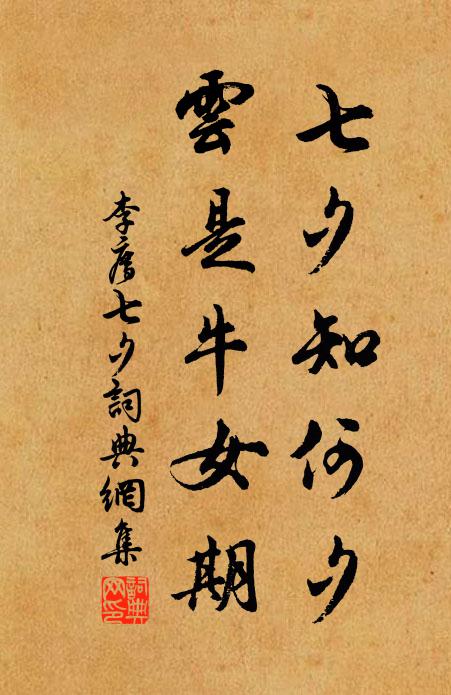 七夕知何夕
雲是牛女期
李廌七夕詞典網集
詞典网印